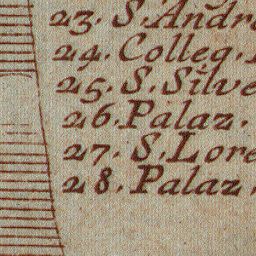 23. S. Andr
24. Colleg.
25. S. Silve
26. Palaz.
27. S. Lore
28. Palaz.